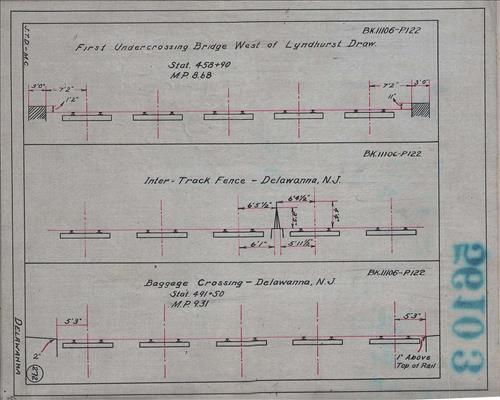 J.T.D.-McG
BK.11106-P.122
First Undercrossing Bridge West of Lyndhurst Draw.
Stat. 458+90
M.P. 8.68
3'0"
7'2"
1'2"
7'2"
3'0"
11"
BK.11106-P.122
Inter-Track Fence - Delawanna, N.J.
6'4½"
6'5½"
6'1"
5'11½"
BK.11106-P.122
Baggage Crossing - Delawanna, N.J.
Stat. 491+50
M.P. 9.31
5'3"
5'3"
2"
1" Above
Top of Rail
DELAWANNA
272
56103